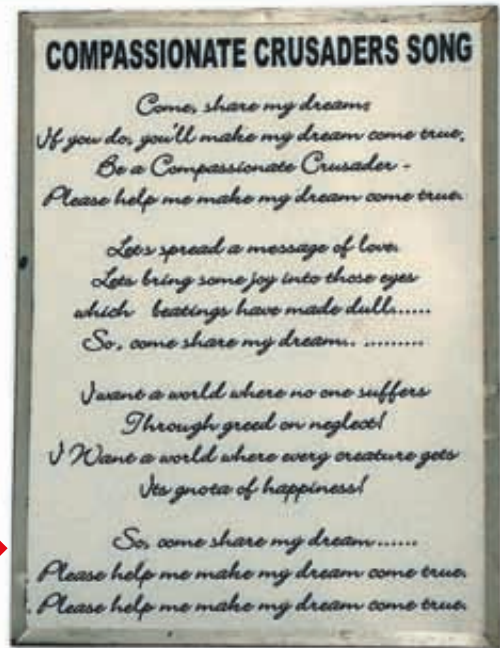 COMPASSIONATE CRUSADERS SONG
Come, share my dream;
If you do, you'll make my dream come true,
Be a Compassionate Crusader -
Please help me make my dream come true.
Lets spread a message of love.
Lets bring some joy into those eyes
which beatings have made dull......
So, come share my dream.. .........
I want a world where no one suffers
Through greed on neglect!
I Want a world where every creature gets
Its gnota of happiness!
So, come share my dream......
Please help me make my dream come true.
Please help me make my dream come true.